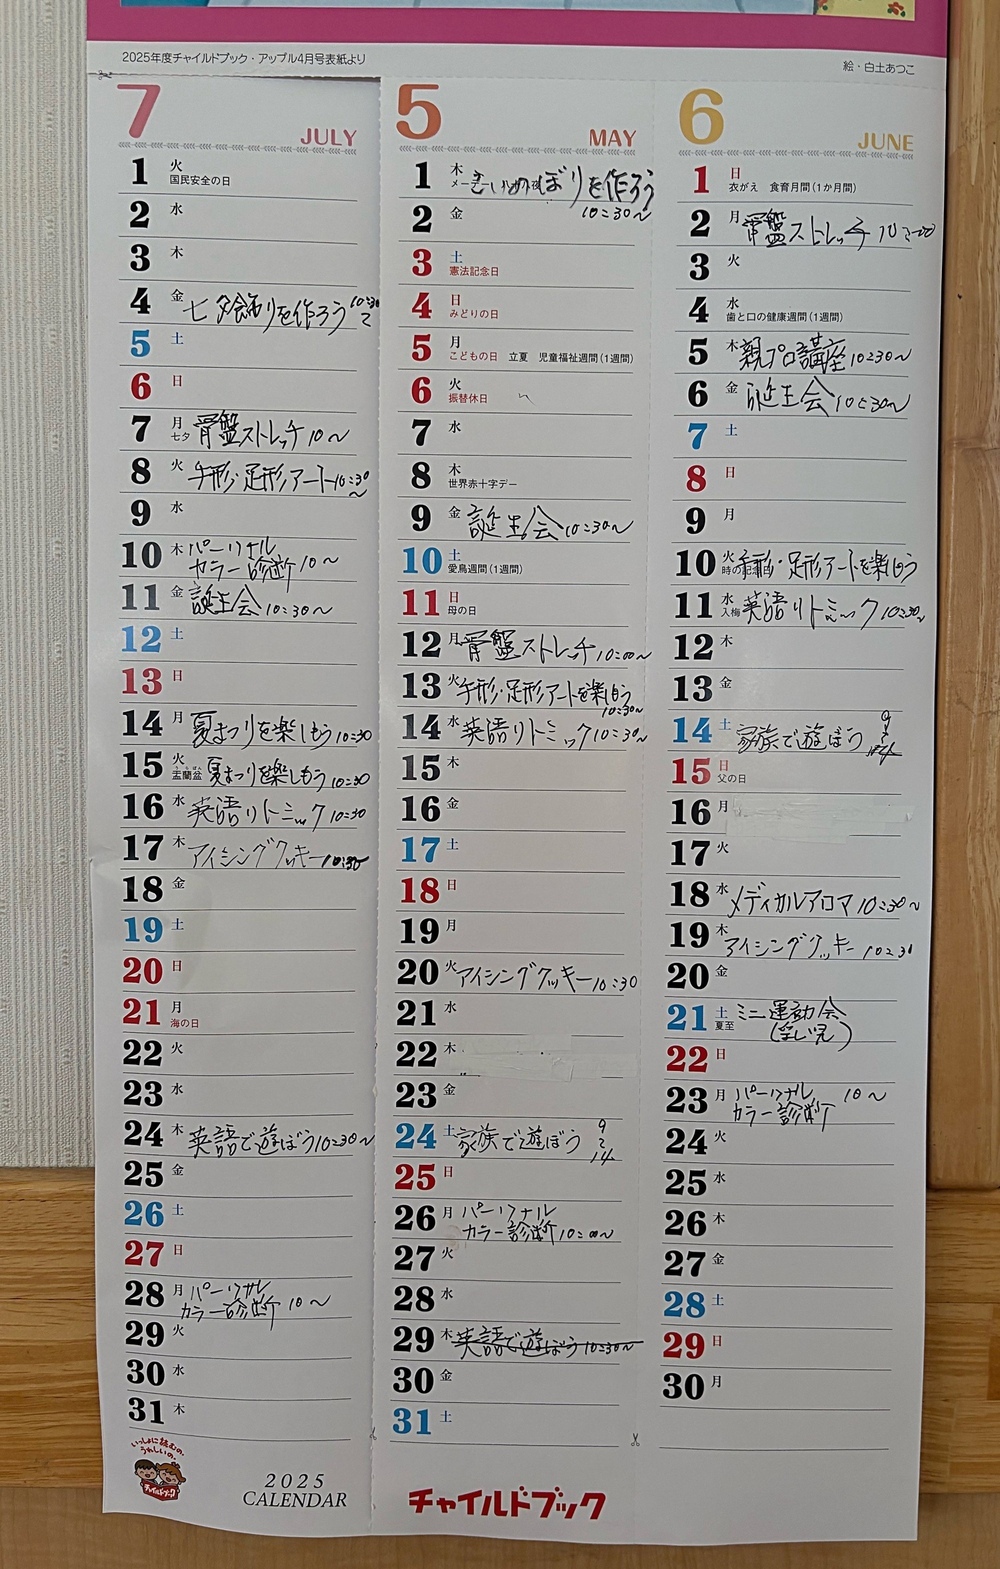 2025年度チャイルドブック・アップル4月号表紙より
絵・白土あつこ
7 JULY
1 火 国民安全の日
2 水
3 木
4 金 七夕飾りを作ろう 10:30〜
5 土
6 日
7 月 七夕 骨盤ストレッチ 10〜
8 火 手形・足形アート 10:30〜
9 水
10 木 パーソナル
カラー診断 10〜
11 金 誕生会 10:30〜
12 土
13 日
14 月 夏まつりを楽しもう 10:30
15 火 盂蘭盆 夏まつりを楽しもう 10:30
16 水 英語リトミック 10:30
17 木 アイシングクッキー 10:30
18 金
19 土
20 日
21 月 海の日
22 火
23 水
24 木 英語で遊ぼう 10:30〜
25 金
26 土
27 日
28 月 パーソナル
カラー診断 10〜
29 火
30 水
31 木
いっしょに読むの、
うれしいの。
チャイルドブック
2025
CALENDAR
5 MAY
1 木 メーデー ぼりを作ろう
10:30〜
2 金
3 土 憲法記念日
4 日 みどりの日
5 月 こどもの日 立夏 児童福祉週間(1週間)
6 火 振替休日
7 水
8 木 世界赤十字デー
9 金 誕生会 10:30〜
10 土 愛鳥週間(1週間)
11 日 母の日
12 月 骨盤ストレッチ 10:00〜
13 火 手形・足形アートを楽しもう
10:30〜
14 水 英語リトミック 10:30〜
15 木
16 金
17 土
18 日
19 月
20 火 アイシングクッキー 10:30
21 水
22 木
23 金
24 土 家族で遊ぼう 9〜14
25 日
26 月 パーソナル
カラー診断 10:00〜
27 火
28 水
29 木 英語で遊ぼう 10:30〜
30 金
31 土
チャイルドブック
6 JUNE
1 日 衣がえ 食育月間(1か月間)
2 月 骨盤ストレッチ 10:00
3 火
4 水 歯と口の健康週間(1週間)
5 木 親プロ講座 10:30〜
6 金 誕生会 10:30〜
7 土
8 日
9 月
10 火 時の記念日 手形・足形アートを楽しもう
11 水 入梅 英語リトミック 10:30〜
12 木
13 金
14 土 家族で遊ぼう 9〜
15 日 父の日
16 月
17 火
18 水 メディカルアロマ 10:30〜
19 木 アイシングクッキー 10:30
20 金
21 土 夏至 ミニ運動会
22 日
23 月 パーソナル 10〜
カラー診断
24 火
25 水
26 木
27 金
28 土
29 日
30 月